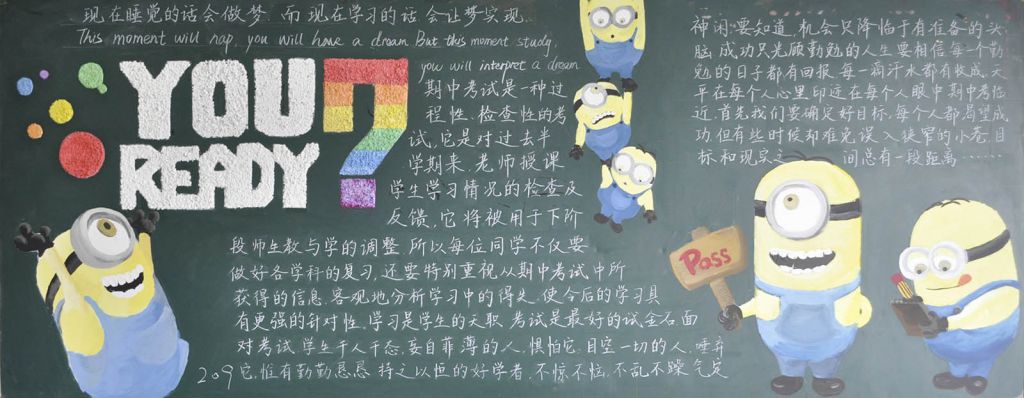 现在睡觉的话会做梦.而现在学习的话会让梦实现.
This moment will nap, you will have a dream But this moment study,
you will interpret a dream
YOU ?
READY
期中考试是一种过
程性.检查性的考
试,它是对过去半
学期来.老师授课
学生学习情况的检查及
反馈,它将被用于下阶
段师生教与学的调整.所以每位同学不仅要
做好各学科的复习,还要特别重视从期中考试中所
获得的信息.客观地分析学习中的得失.使今后的学习具
有更强的针对性.学习是学生的天职.考试是最好的试金石面
对考试.学生千人千态,妄自菲薄的人.惧怕它,目空一切的人.唾弃
209 它,惟有勤勤恳恳.持之以恒的好学者,不惊不怯,不乱不躁气定
神闲.要知道,机会只降临于有准备的头
脑,成功只光顾勤勉的人生要相信每一个勤
勉的日子都有回报.每一滴汗水都有收成.天
平在每个人心里印近在每个人眼中期中考临
近.首先我们要确定好目标.每个人都渴望成
功.但有些时候却难免误入狭窄的小巷.目
标和现实之 间总有一段距离……
Pass